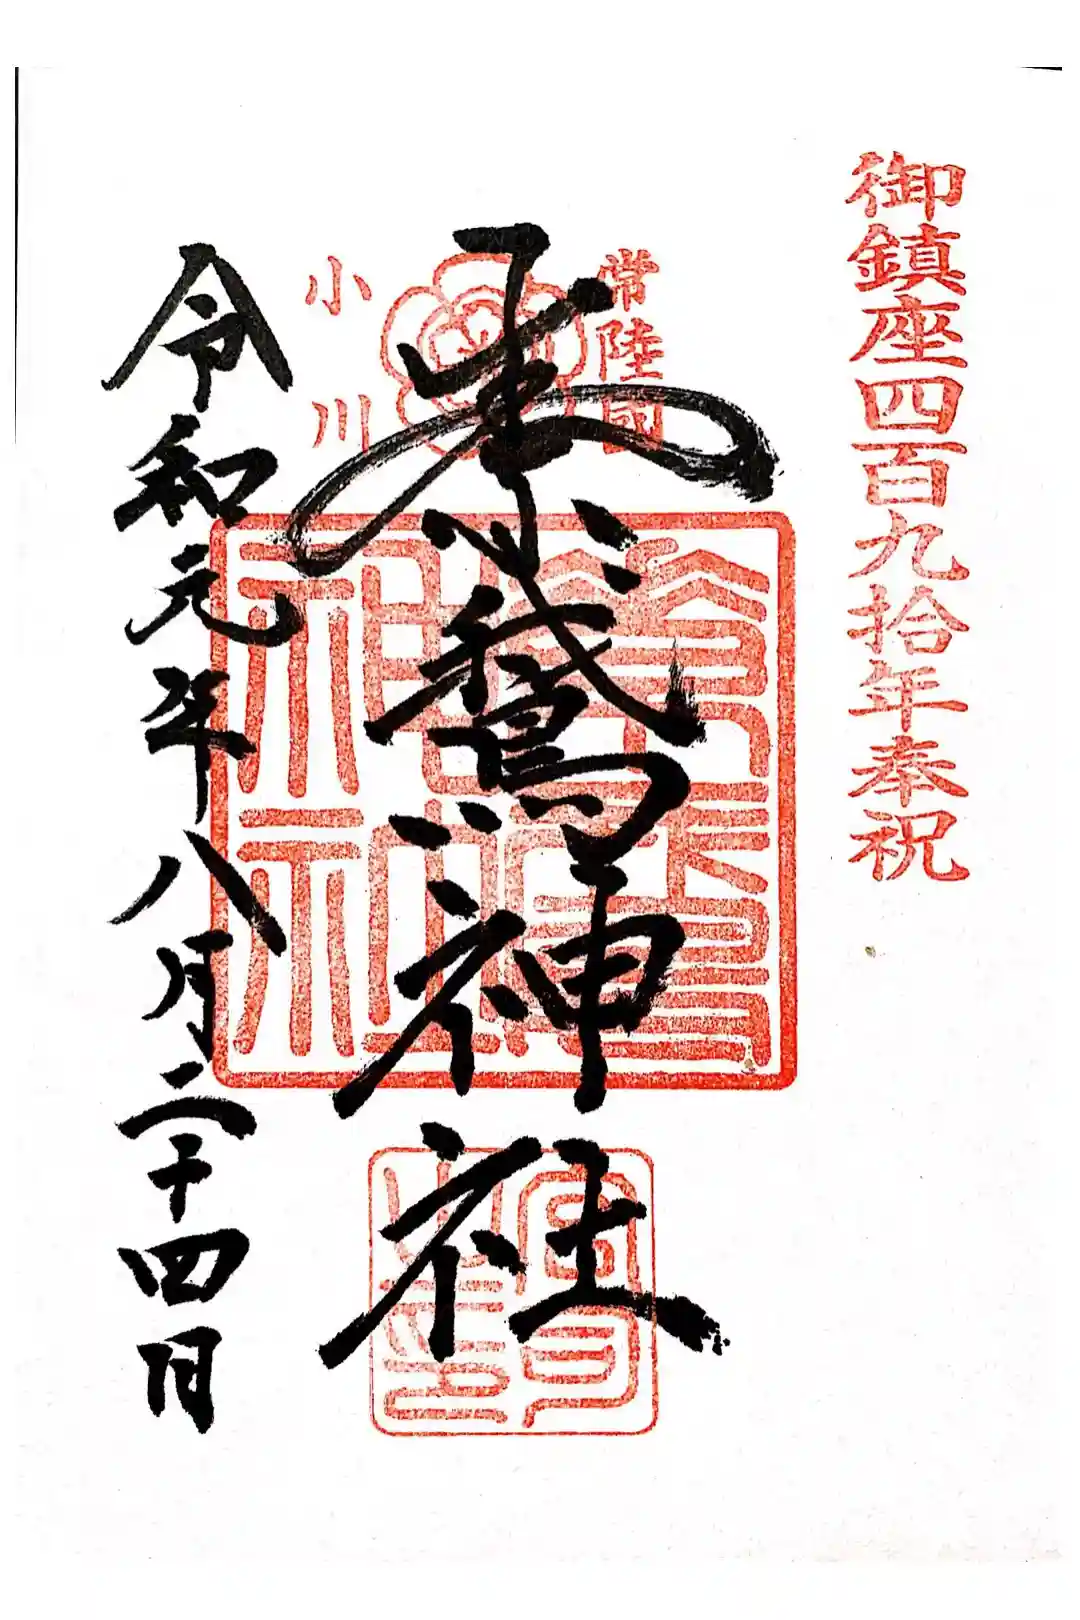 御鎮座四百九拾年奉祝
常陸國
小川
素鵞神社
宮司之印
令和元年八月二十四日